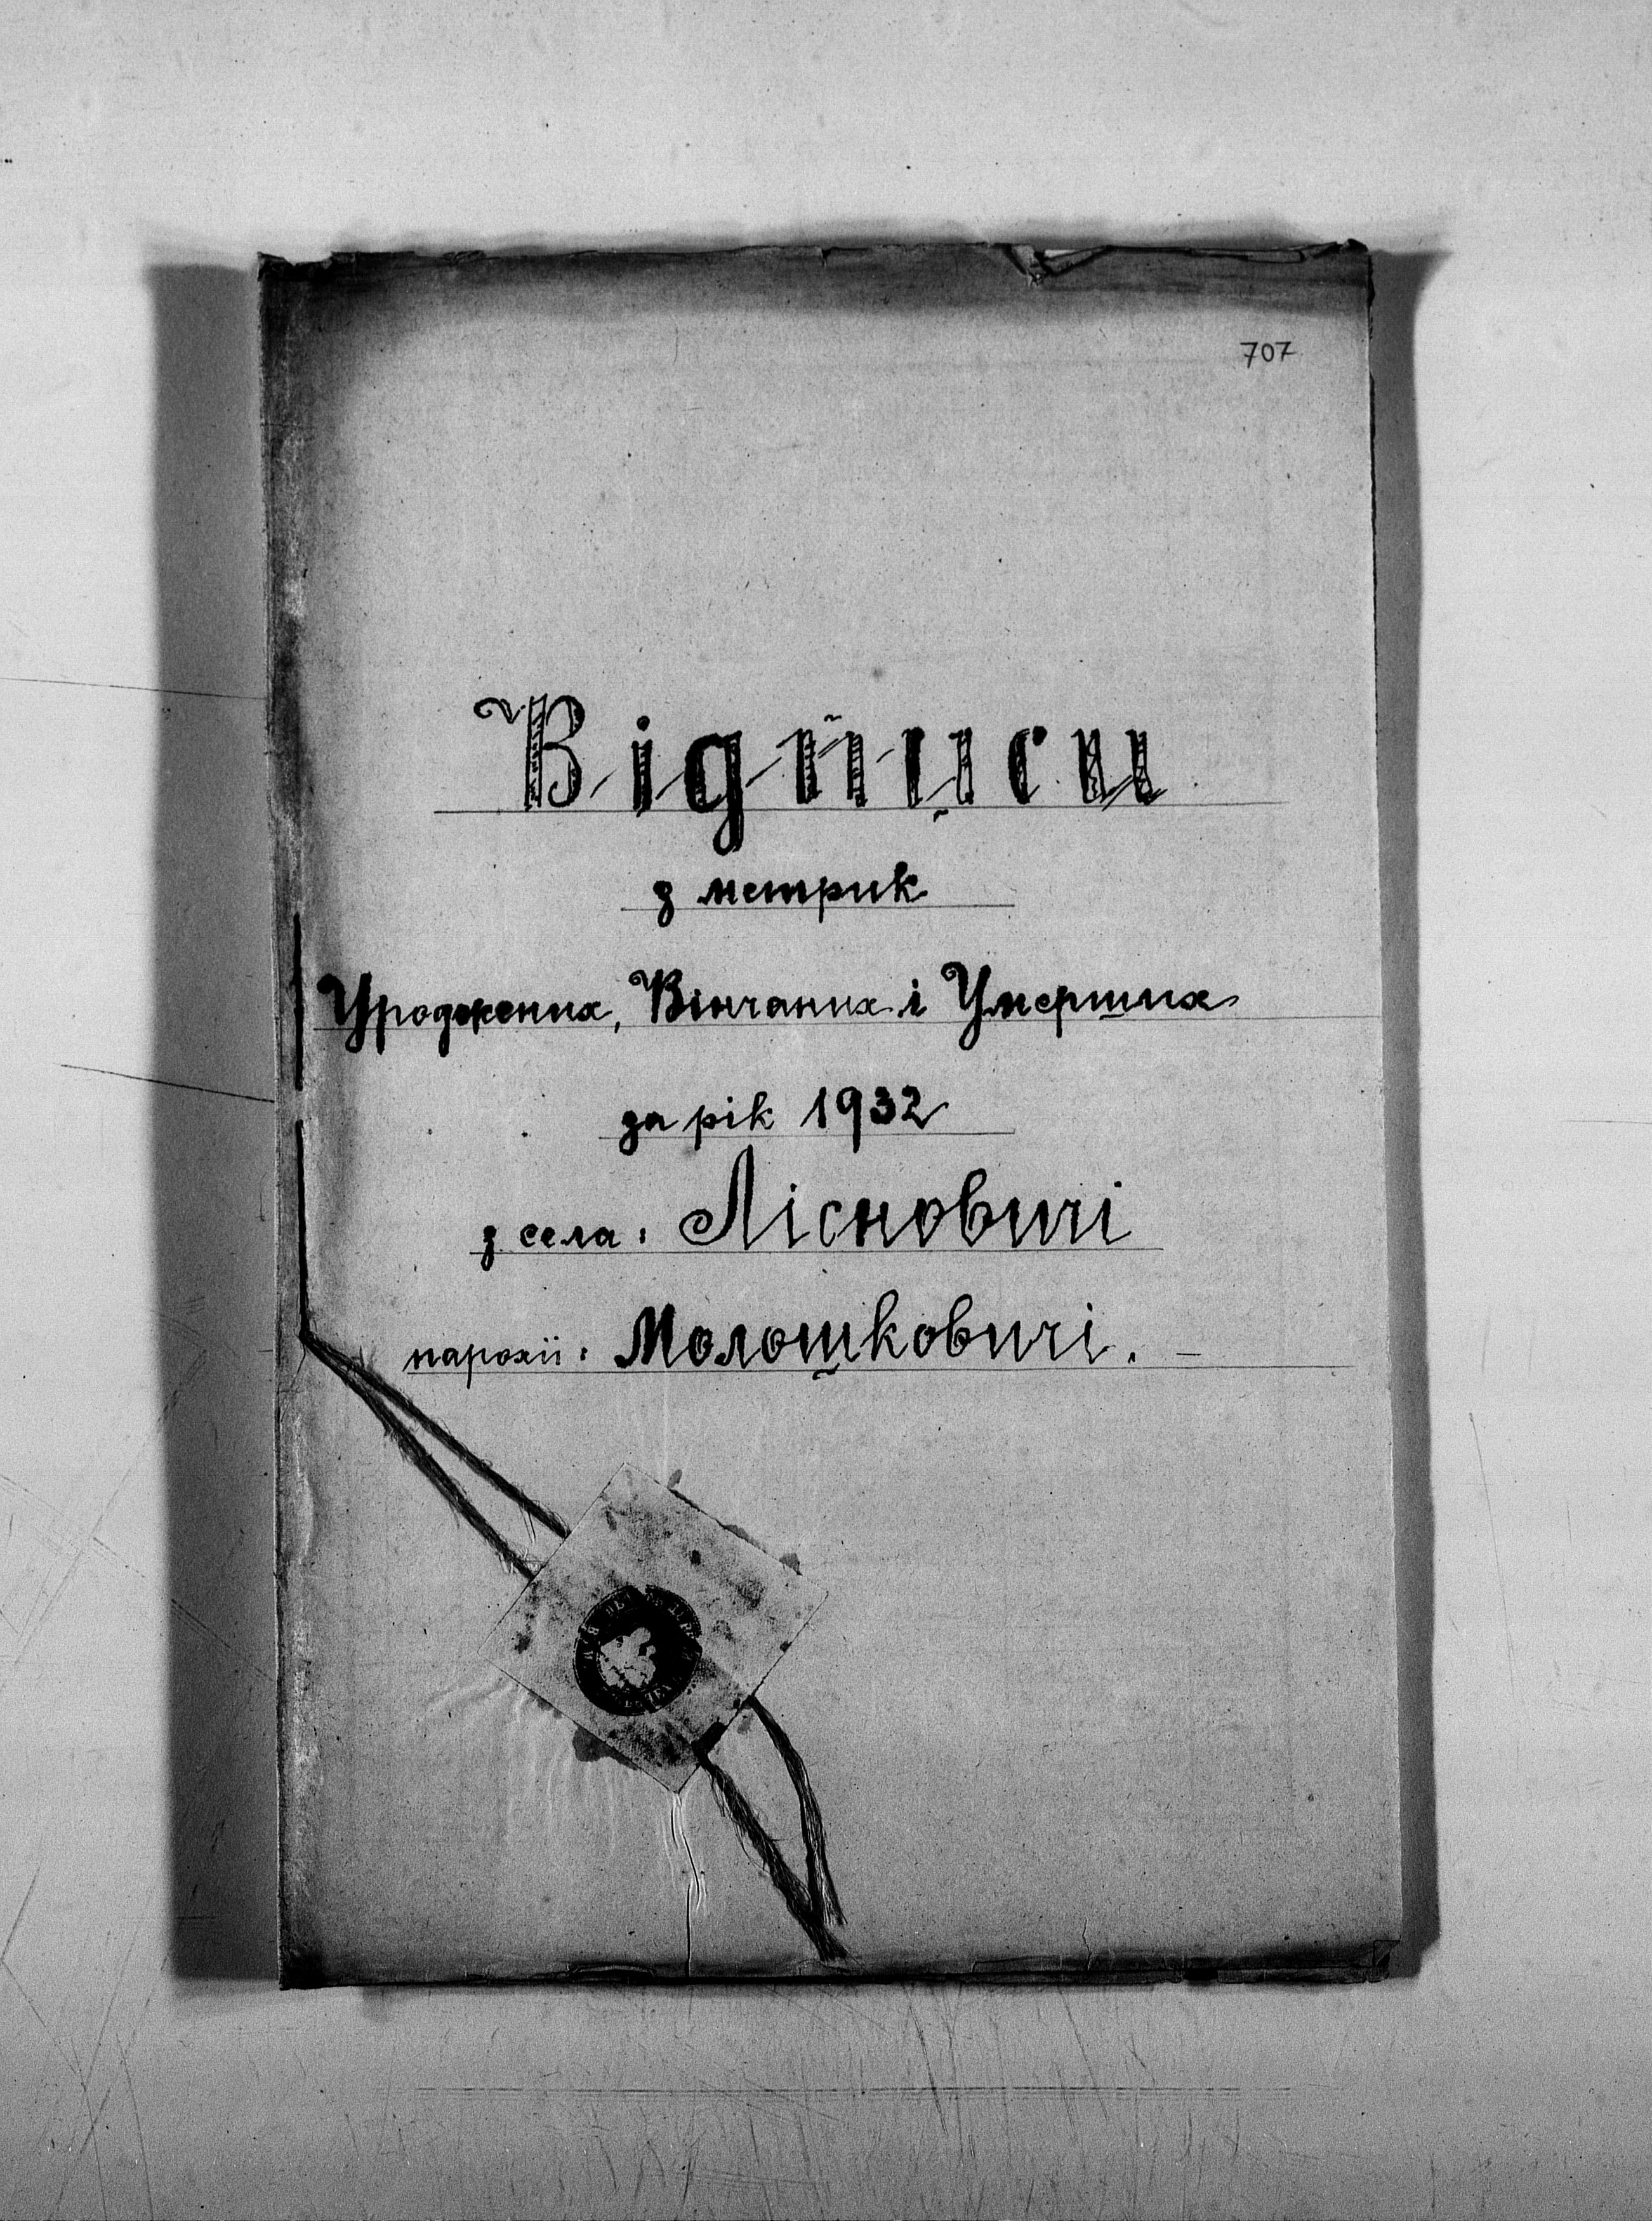 707
Відписи
з метрик
Уроджених, Вінчаних і Умерших
за рік 1932
з села: Лісновичі
парохії: Молошковичі. –